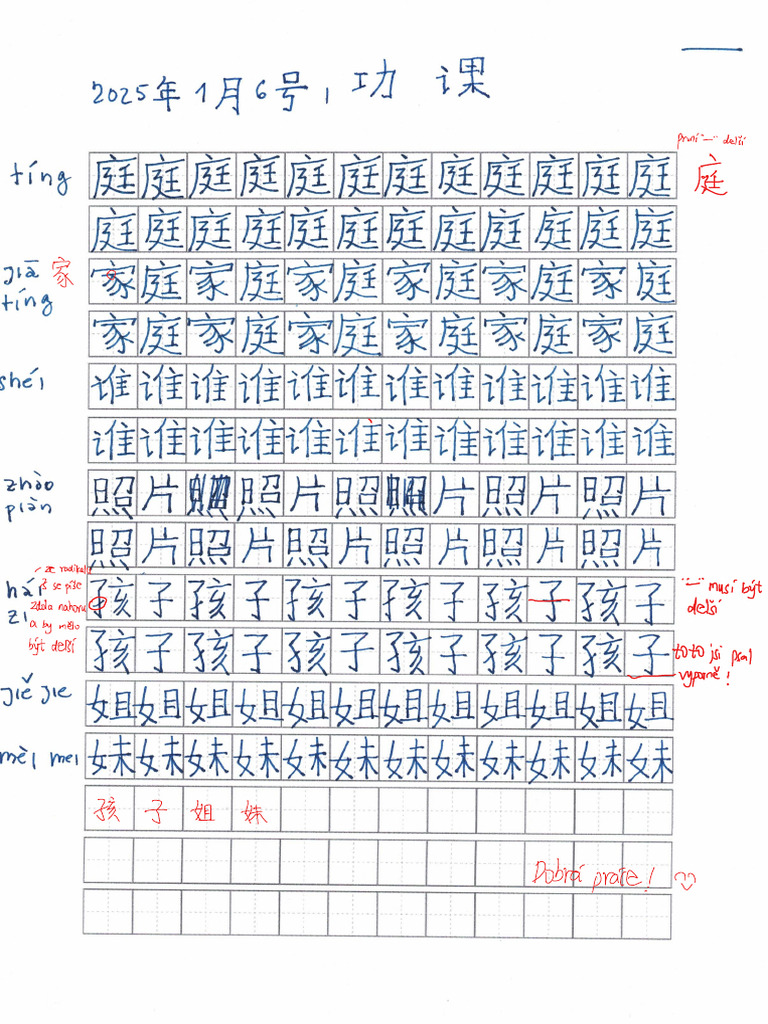 2025年1月6号, 功 课
první "一" delší
tíng 庭庭庭庭庭庭庭庭庭庭庭庭 庭
庭庭庭庭庭庭庭庭庭庭庭庭
jiā 家 家庭家庭家庭家庭家庭家庭
tíng
家庭家庭家庭家庭家庭家庭
shéi 谁谁谁谁谁谁谁谁谁谁谁谁
谁谁谁谁谁谁谁谁谁谁谁谁
zhào 照片 照片照 片照片照片
piàn
照片照片照片照片照片照片
hái 孩子孩子孩子孩子孩子孩子
zi
se píše
zdola nahoru
a by mělo
být delší
"一" musí být
delší
孩子孩子孩子孩子孩子孩子
toto jsi psal
výporně!
jiě jie 姐姐姐姐姐姐姐姐姐姐姐姐
mèi mei 妹妹妹妹妹妹妹妹妹妹妹妹
孩子姐妹
Dobrá práce!